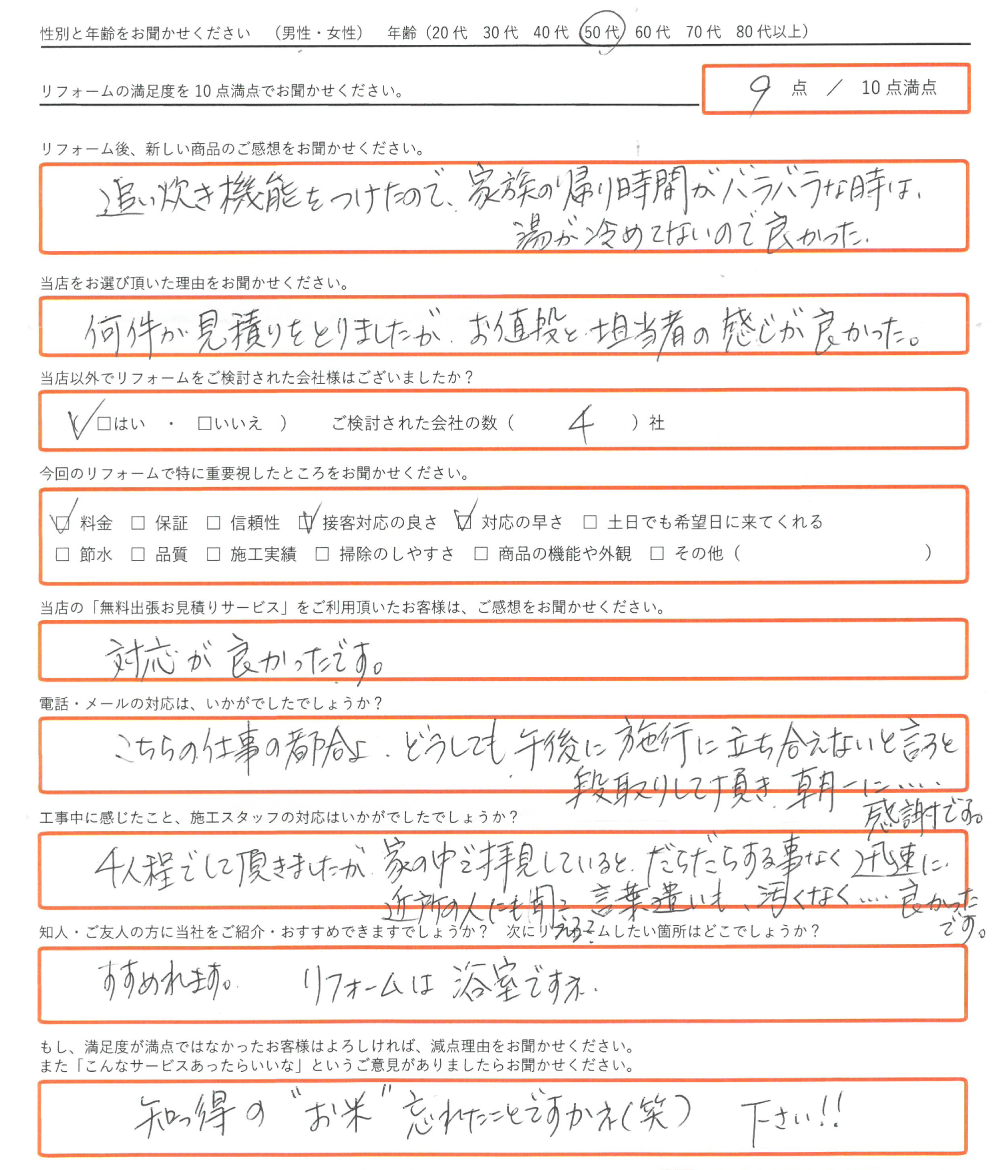 性別と年齢をお聞かせください （男性・女性） 年齢（20代 30代 40代 50代 60代 70代 80代以上）
リフォームの満足度を10点満点でお聞かせください。
9 点 ／ 10点満点
リフォーム後、新しい商品のご感想をお聞かせください。
追い炊き機能をつけたので、家族の帰り時間がバラバラな時は、
湯が冷めてないので良かった.
当店をお選び頂いた理由をお聞かせください。
何件か見積りをとりましたが、お値段と、担当者の感じが良かった。
当店以外でリフォームをご検討された会社様はございましたか？
□はい ・ □いいえ ） ご検討された会社の数（ 4 ）社
今回のリフォームで特に重要視したところをお聞かせください。
□ 料金 □ 保証 □ 信頼性 □ 接客対応の良さ □ 対応の早さ □ 土日でも希望日に来てくれる
□ 節水 □ 品質 □ 施工実績 □ 掃除のしやすさ □ 商品の機能や外観 □ その他（ ）
当店の「無料出張お見積りサービス」をご利用頂いたお客様は、ご感想をお聞かせください。
対応が良かったです。
電話・メールの対応は、いかがでしたでしょうか？
こちらの仕事の都合上、どうしても午後に施行に立ち合えないと言うと
段取りして頂き、朝一に.....
感謝です。
工事中に感じたこと、施工スタッフの対応はいかがでしたでしょうか？
4人程でして頂きましたが、家の中で拝見していると、だらだらする事なく迅速に、
近所の人にも聞こえる？言葉遣いも、汚くなく....良かった
です。
知人・ご友人の方に当社をご紹介・おすすめできますでしょうか？ 次にリフォームしたい箇所はどこでしょうか？
すすめれます。 リフォームは浴室ですネ.
もし、満足度が満点ではなかったお客様はよろしければ、減点理由をお聞かせください。
また「こんなサービスあったらいいな」というご意見がありましたらお聞かせください。
知っ得の"お米"忘れたことですかネ(笑) 下さい!!